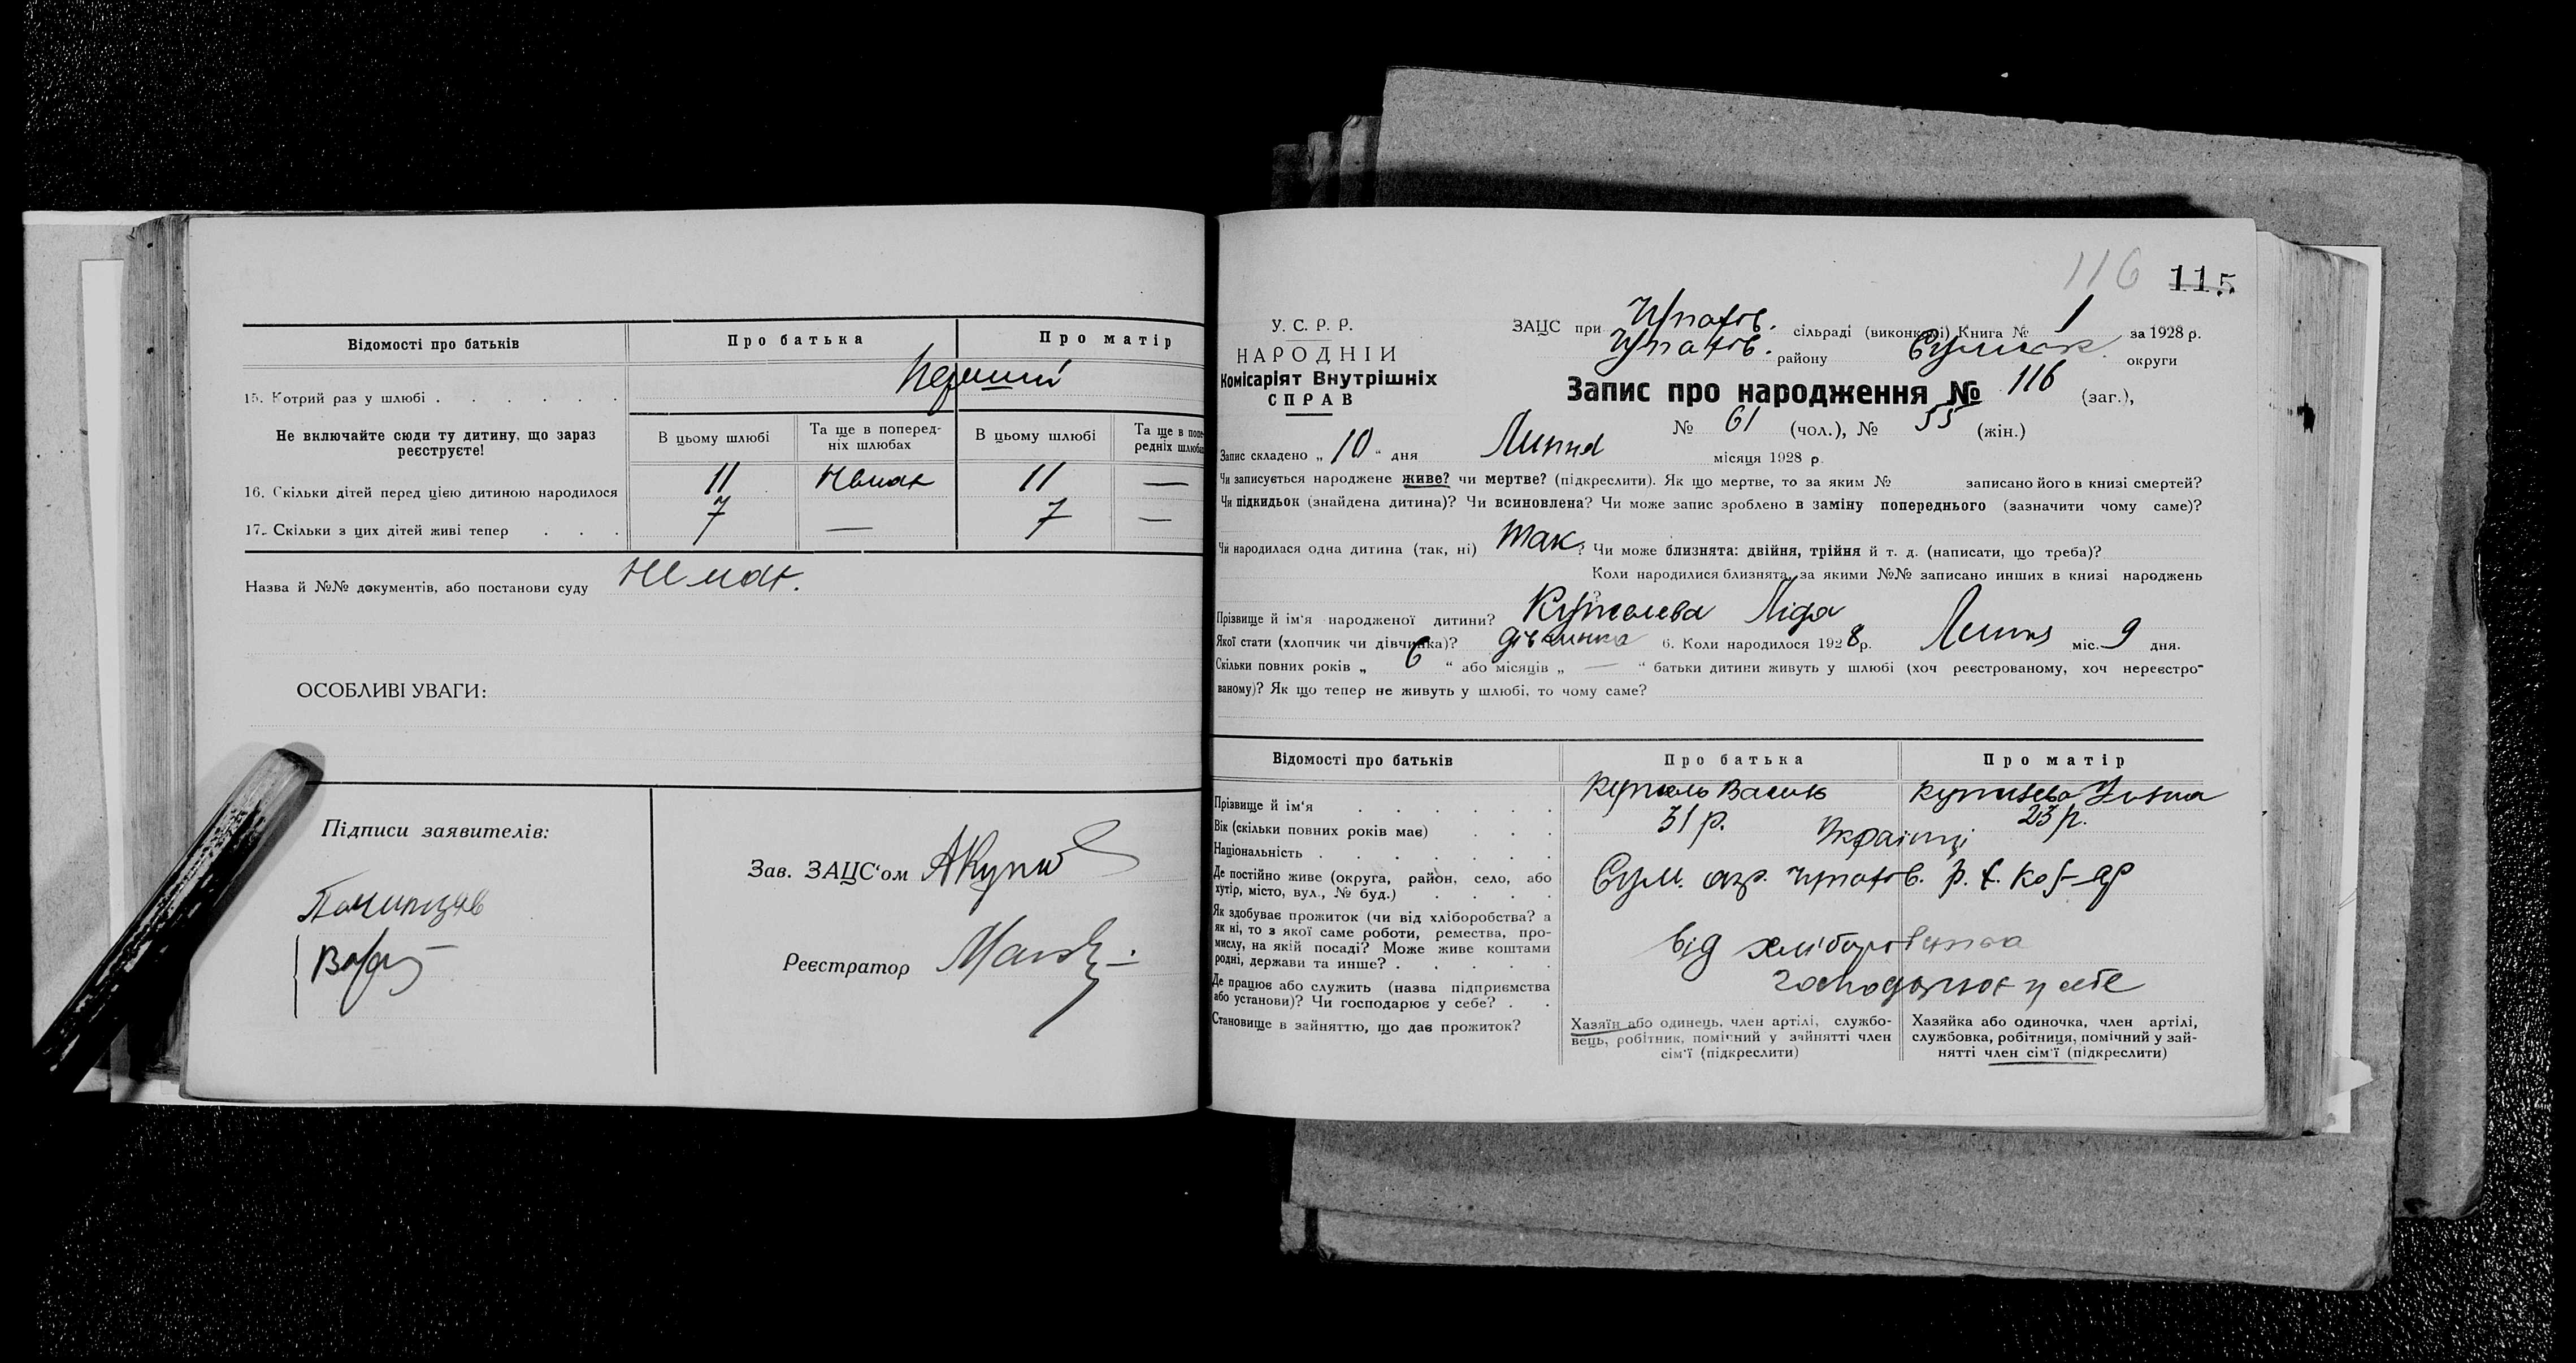 Відомості про батьків
Про батька
Про матір
15. Котрий раз у шлюбі
Перший
Не включайте сюди ту дитину, що зараз реєструєте!
В цьому шлюбі
Та ще в попередніх шлюбах
В цьому шлюбі
Та ще в попе-
редніх шлюбах
16. Скільки дітей перед цією дитиною народилося
11 Немає 11 —
17. Скільки з цих дітей живі тепер
7 — 7 —
Назва й №№ документів, або постанови суду Немає.
ОСОБЛИВІ УВАГИ:
Підписи заявителів:
Зав. ЗАЦС'ом
Реєстратор
116 115
У. С. Р. Р.
НАРОДНІЙ
Комісаріят Внутрішніх
СПРАВ
ЗАЦС при сільраді (виконкомі) Книга № 1 за 1928 р.
району округи
Запис про народження № 116 (заг.),
№ 61 (чол.), № 55 (жін.)
Запис складено „ 10 “ дня Липня місяця 1928 р.
Чи записується народжене живе? чи мертве? (підкреслити). Як що мертве, то за яким № записано його в книзі смертей?
Чи підкидьок (знайдена дитина)? Чи всиновлена? Чи може запис зроблено в заміну попереднього (зазначити чому саме)?
Чи народилася одна дитина (так, ні) Так ? Чи може близнята: двійня, трійня й т. д. (написати, що треба)?
Коли народилися близнята, за якими №№ записано инших в книзі народжень
?
Прізвище й ім'я народженої дитини? Ліда
Якої стати (хлопчик чи дівчинка)? дівчинка 6. Коли народилося 1928 р. Липня міс. 9 дня.
Скільки повних років „ 6 “ або місяців „ — “ батьки дитини живуть у шлюбі (хоч реєстрованому, хоч нереєстро-
ваному)? Як що тепер не живуть у шлюбі, то чому саме?
Відомості про батьків
Про батька
Про матір
Прізвище й ім'я
Вік (скільки повних років має) 31 р. 23 р.
Національність Українці
Де постійно живе (округа, район, село, або
хутір, місто, вул., № буд.)
Як здобуває прожиток (чи від хліборобства? а
як ні, то з якої саме роботи, ремества, про-
мислу, на якій посаді? Може живе коштами
родні, держави та инше?
від хліборобства
Де працює або служить (назва підприємства
або установи)? Чи господарює у себе?
господарює у себе
Становище в зайняттю, що дає прожиток?
Хазяїн або одинець, член артілі, службо-
вець, робітник, помічний у зайнятті член
сім'ї (підкреслити)
Хазяйка або одиночка, член артілі,
службовка, робітниця, помічний у зай-
нятті член сім'ї (підкреслити)